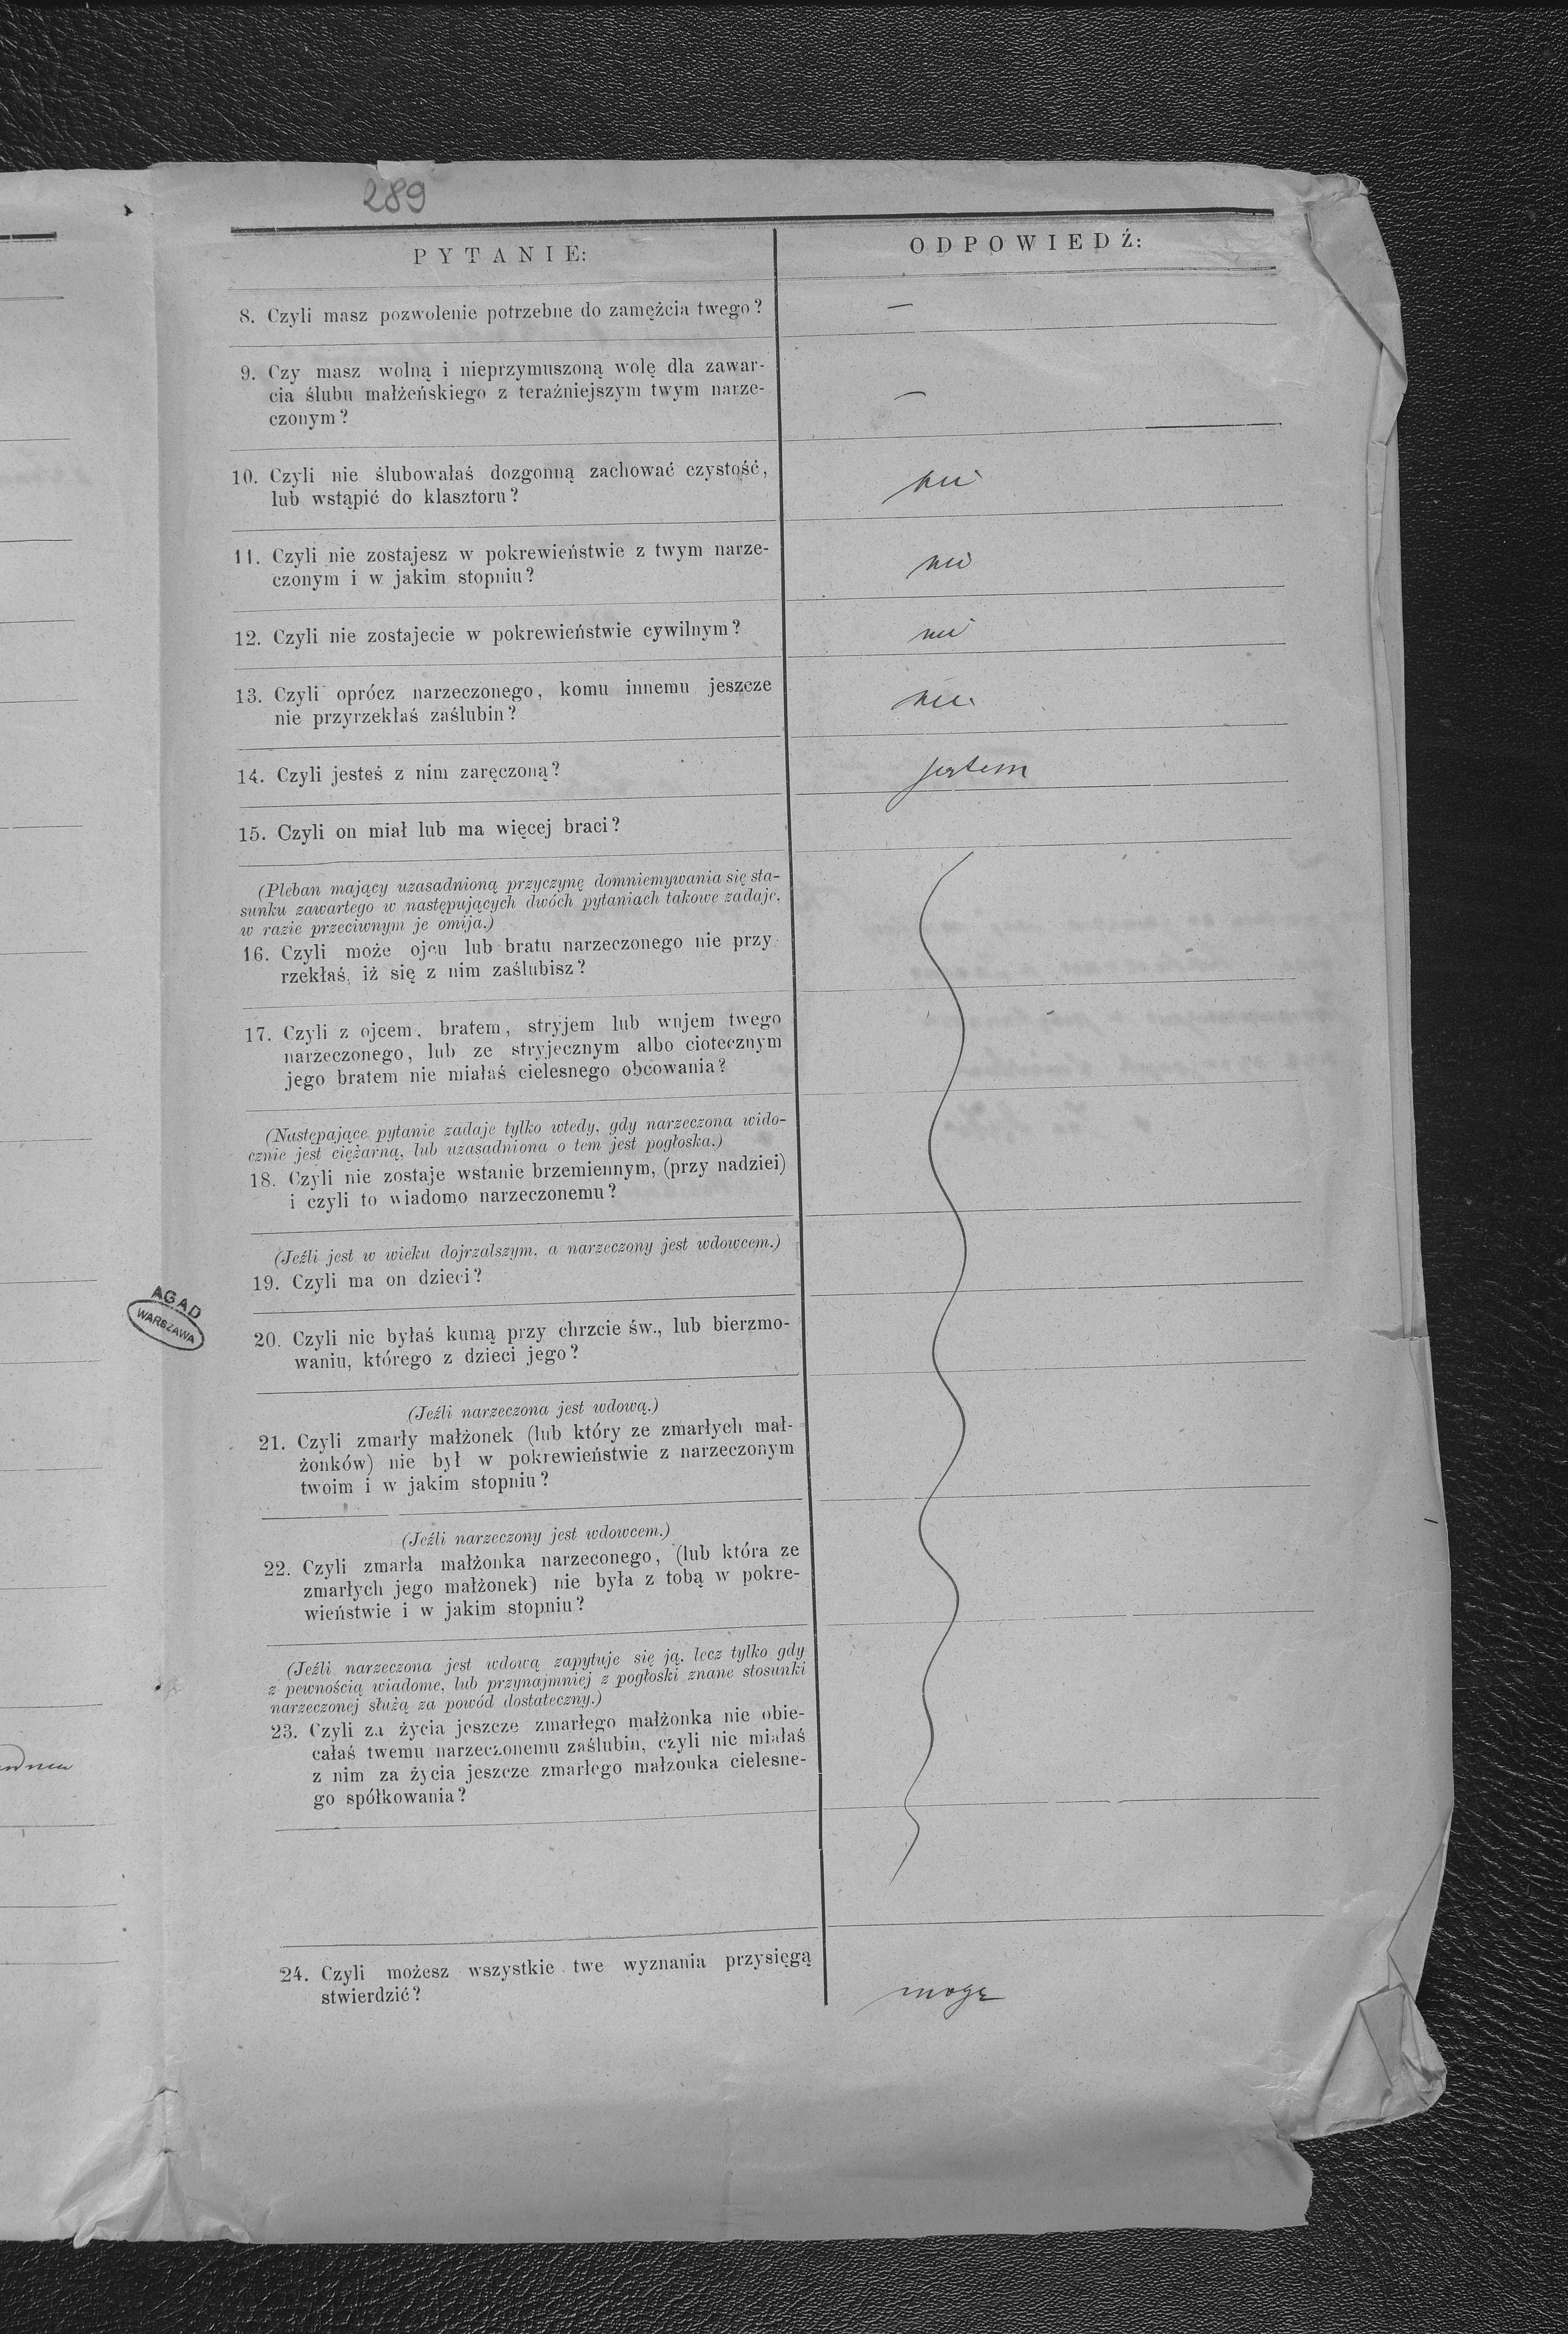 289
PYTANIE:
ODPOWIEDŹ:
8. Czyli masz pozwolenie potrzebne do zamężcia twego?
—
9. Czy masz wolną i nieprzymuszoną wolę dla zawar-
cia ślubu małżeńskiego z teraźniejszym twym narze-
czonym?
—
10. Czyli nie ślubowałaś dozgonną zachować czystość,
lub wstąpić do klasztoru?
nie
11. Czyli nie zostajesz w pokrewieństwie z twym narze-
czonym i w jakim stopniu?
nie
12. Czyli nie zostajecie w pokrewieństwie cywilnym?
nie
13. Czyli oprócz narzeczonego, komu innemu jeszcze
nie przyrzekłaś zaślubin?
nie
14. Czyli jesteś z nim zaręczoną?
jestem
15. Czyli on miał lub ma więcej braci?
(Pleban mający uzasadnioną przyczynę domniemywania się sta-
sunku zawartego w następujących dwóch pytaniach takowe zadaje,
w razie przeciwnym je omija.)
16. Czyli może ojcu lub bratu narzeczonego nie przy-
rzekłaś, iż się z nim zaślubisz?
17. Czyli z ojcem, bratem, stryjem lub wujem twego
narzeczonego, lub ze stryjecznym albo ciotecznym
jego bratem nie miałaś cielesnego obcowania?
(Następające pytanie zadaje tylko wtedy, gdy narzeczona wido-
cznie jest ciężarną, lub uzasadniona o tem jest pogłoska.)
18. Czyli nie zostaje wstanie brzemiennym, (przy nadziei)
i czyli to wiadomo narzeczonemu?
(Jeźli jest w wieku dojrzalszym, a narzeczony jest wdowcem.)
19. Czyli ma on dzieci?
AGAD
WARSZAWA
20. Czyli nie byłaś kumą przy chrzcie św., lub bierzmo-
waniu, którego z dzieci jego?
(Jeźli narzeczona jest wdową.)
21. Czyli zmarły małżonek (lub który ze zmarłych mał-
żonków) nie był w pokrewieństwie z narzeczonym
twoim i w jakim stopniu?
(Jeźli narzeczony jest wdowcem.)
22. Czyli zmarła małżonka narzeconego, (lub która ze
zmarłych jego małżonek) nie była z tobą w pokre-
wieństwie i w jakim stopniu?
(Jeźli narzeczona jest wdową zapytuje się ją, lecz tylko gdy
z pewnością wiadome, lub przynajmniej z pogłoski znane stosunki
narzeczonej służą za powód dostateczny.)
23. Czyli za życia jeszcze zmarłego małżonka nie obie-
całaś twemu narzeczonemu zaślubin, czyli nie miałaś
z nim za życia jeszcze zmarłego małżonka cielesne-
go spółkowania?
24. Czyli możesz wszystkie twe wyznania przysięgą
stwierdzić?
mogę